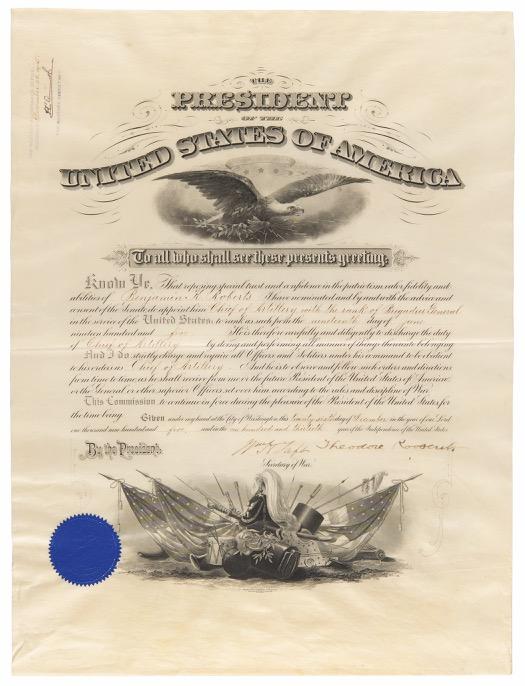 THE
PRESIDENT
OF THE
UNITED STATES OF AMERICA
To all who shall see these presents greeting:
Know Ye, That reposing special trust and confidence in the patriotism, valor, fidelity and
abilities of Benjamin K. Roberts I have nominated and by and with the advice and
consent of the Senate do appoint him Chief of Artillery with the rank of Brigadier General
in the service of the United States: to rank as such from the nineteenth day of June
nineteen hundred and five He is therefore carefully and diligently to discharge the duty
of Chief of Artillery by doing and performing all manner of things thereunto belonging
And I do strictly charge and require all Officers and Soldiers under his command to be obedient
to his orders as Chief of Artillery And he is to observe and follow such orders and directions
from time to time as he shall receive from me or the future President of the United States of America
or the General or other superior Officers set over him according to the rules and discipline of War
This Commission to continue in force during the pleasure of the President of the United States for
the time being
Given under my hand at the City of Washington this twenty sixth day of December in the year of our Lord
one thousand nine hundred and five and in the one hundred and thirtieth year of the Independence of the United States
By the President:
Wm H Taft Theodore Roosevelt
Secretary of War